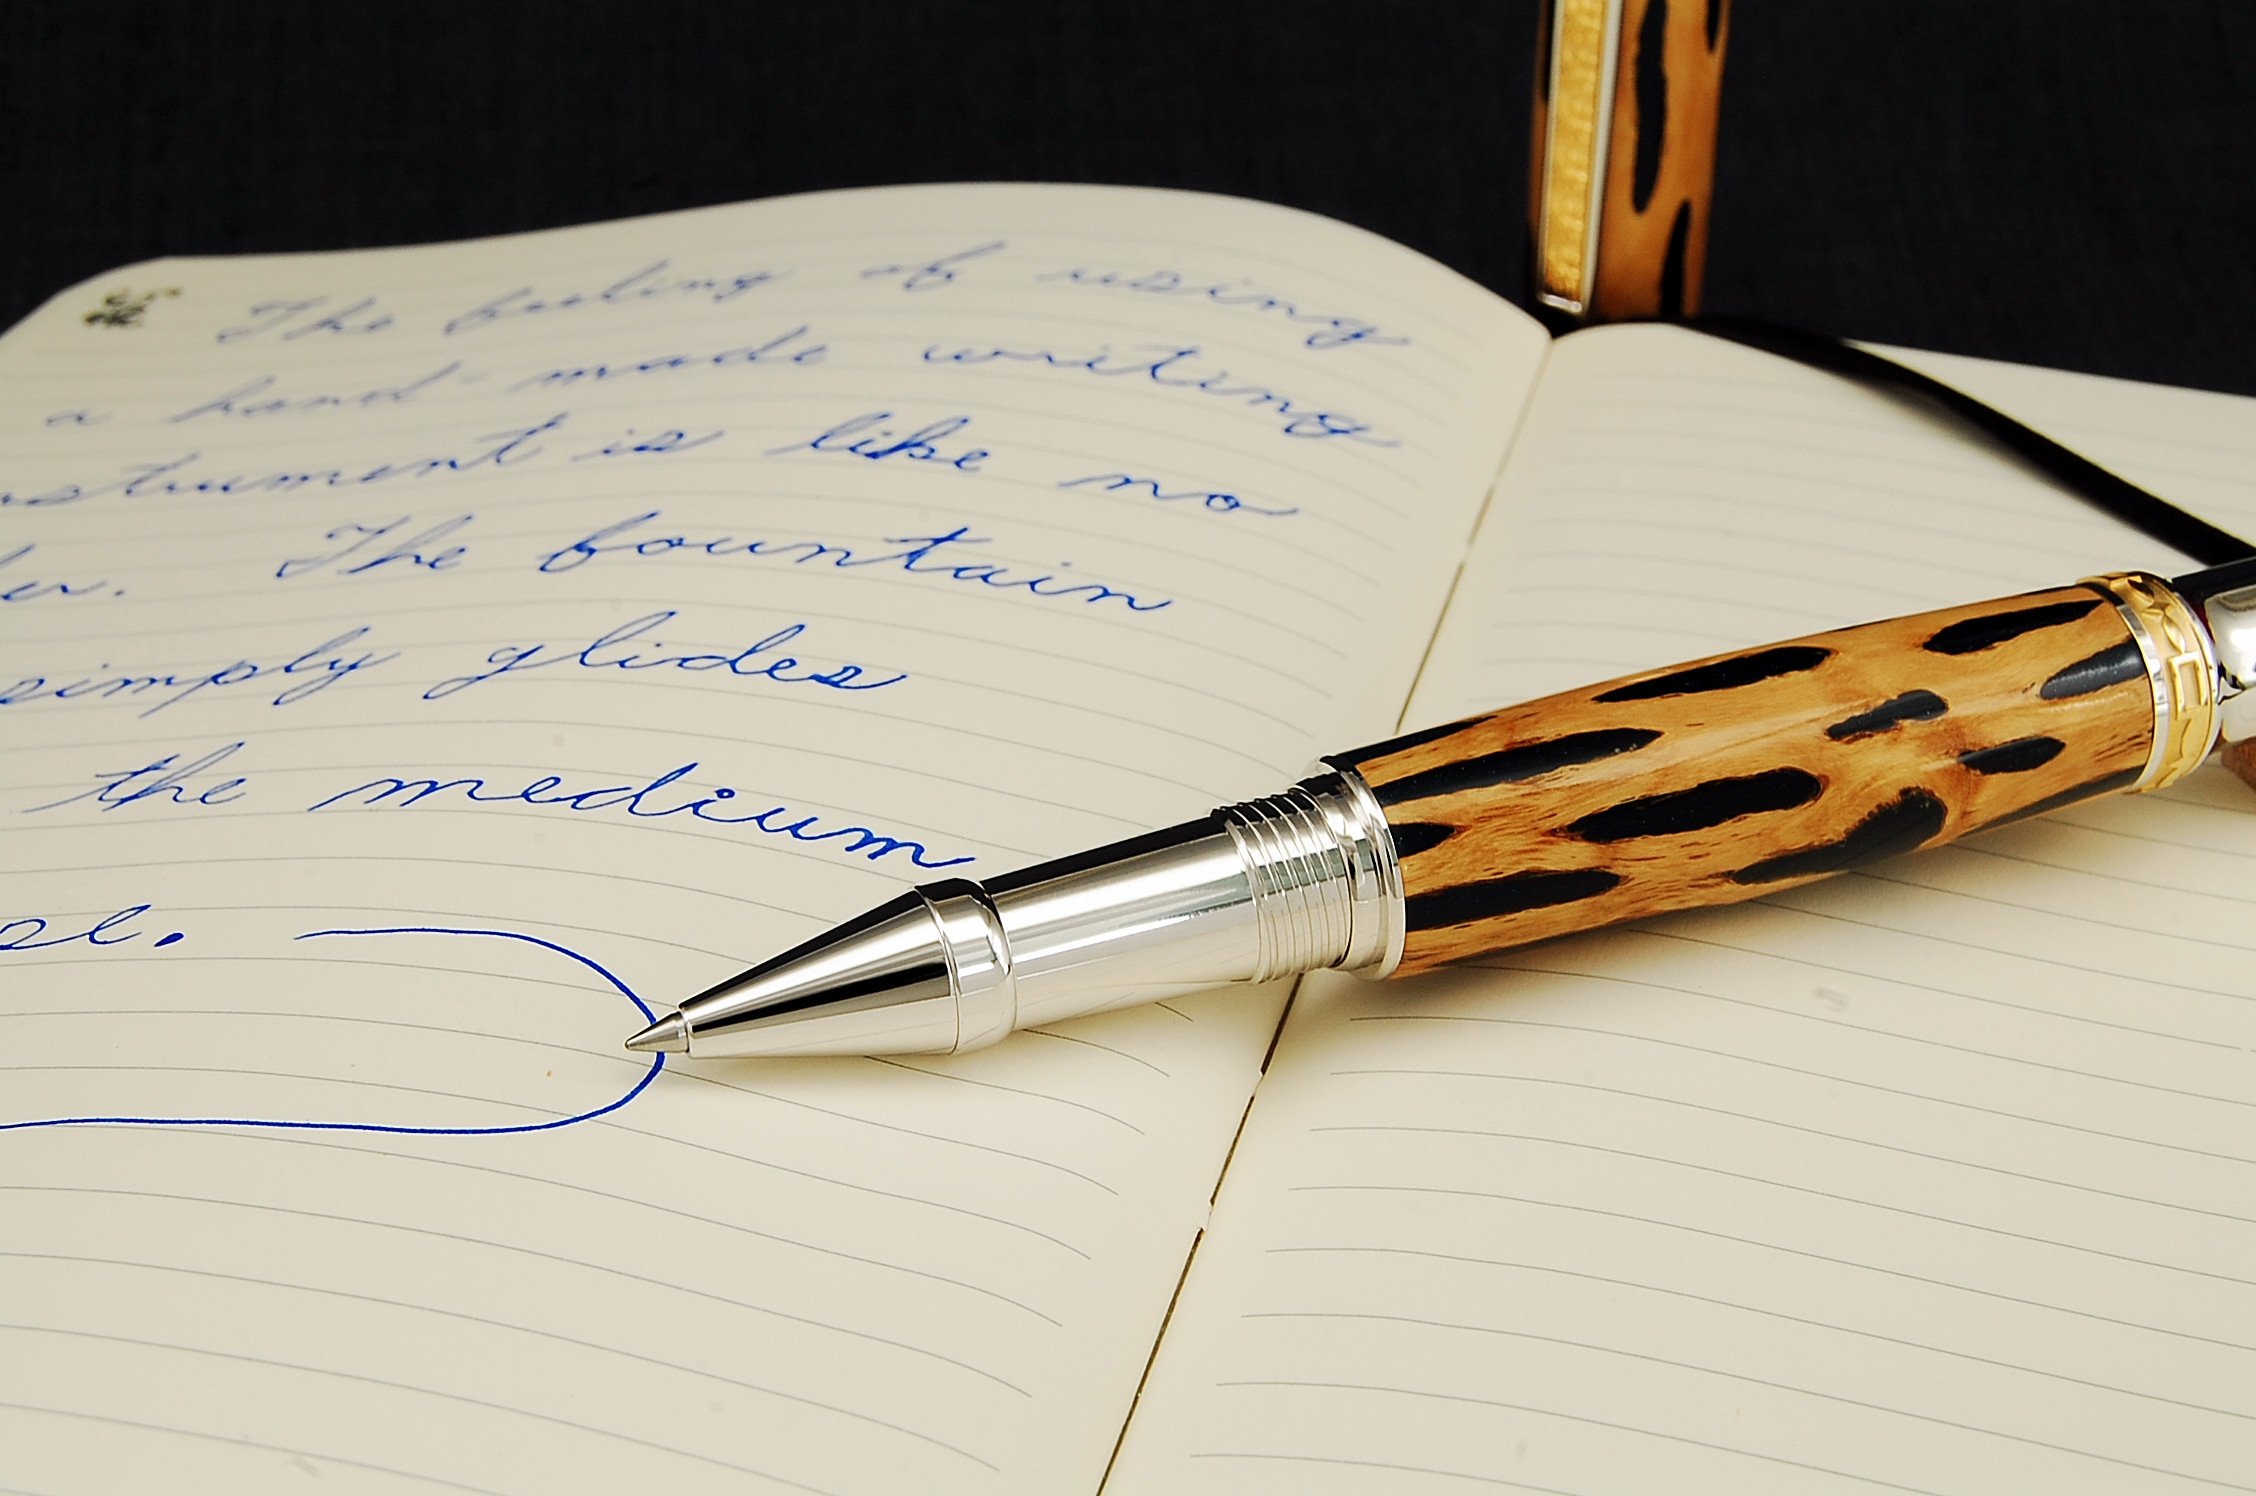 The feeling of using
a hand-made writing
nstrument is like no
er. The fountain
simply glides
the medium
se.